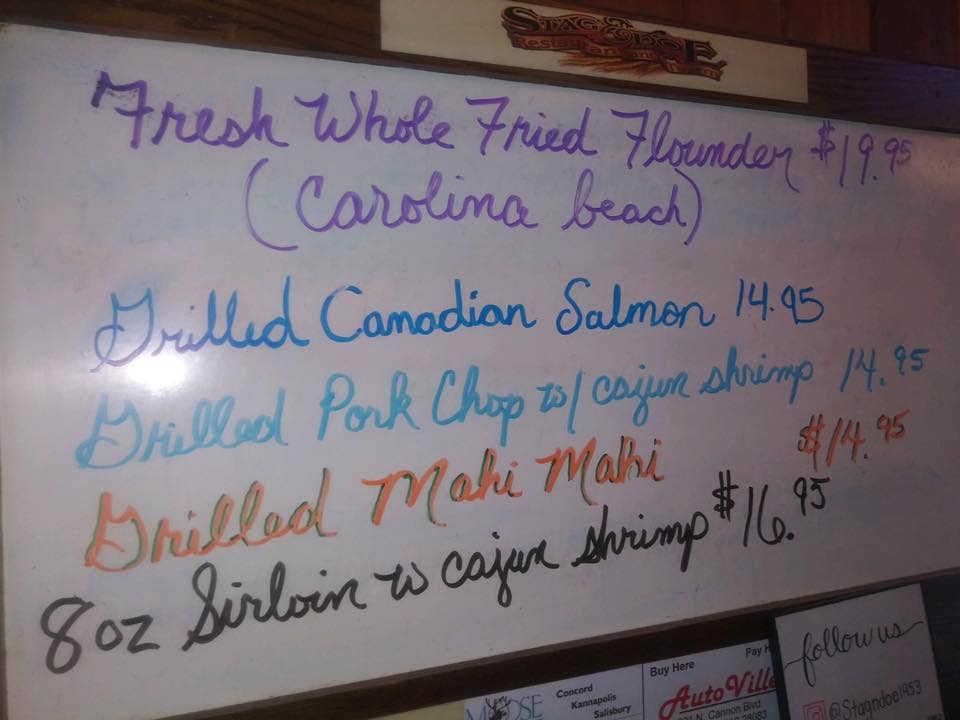 STAG & DOE
Restaurant and Tavern
Fresh Whole Fried Flounder $19.95
(Carolina beach)
Grilled Canadian Salmon 14.95
Grilled Pork Chop w/ cajun shrimp 14.95
Grilled Mahi Mahi $14.95
8oz Sirloin w cajun shrimp $16.95
Concord
Kannapolis
Salisbury
Buy Here Pay H
AutoVille
N. Cannon Blvd.
28083
follow us
@Stagndoe1953